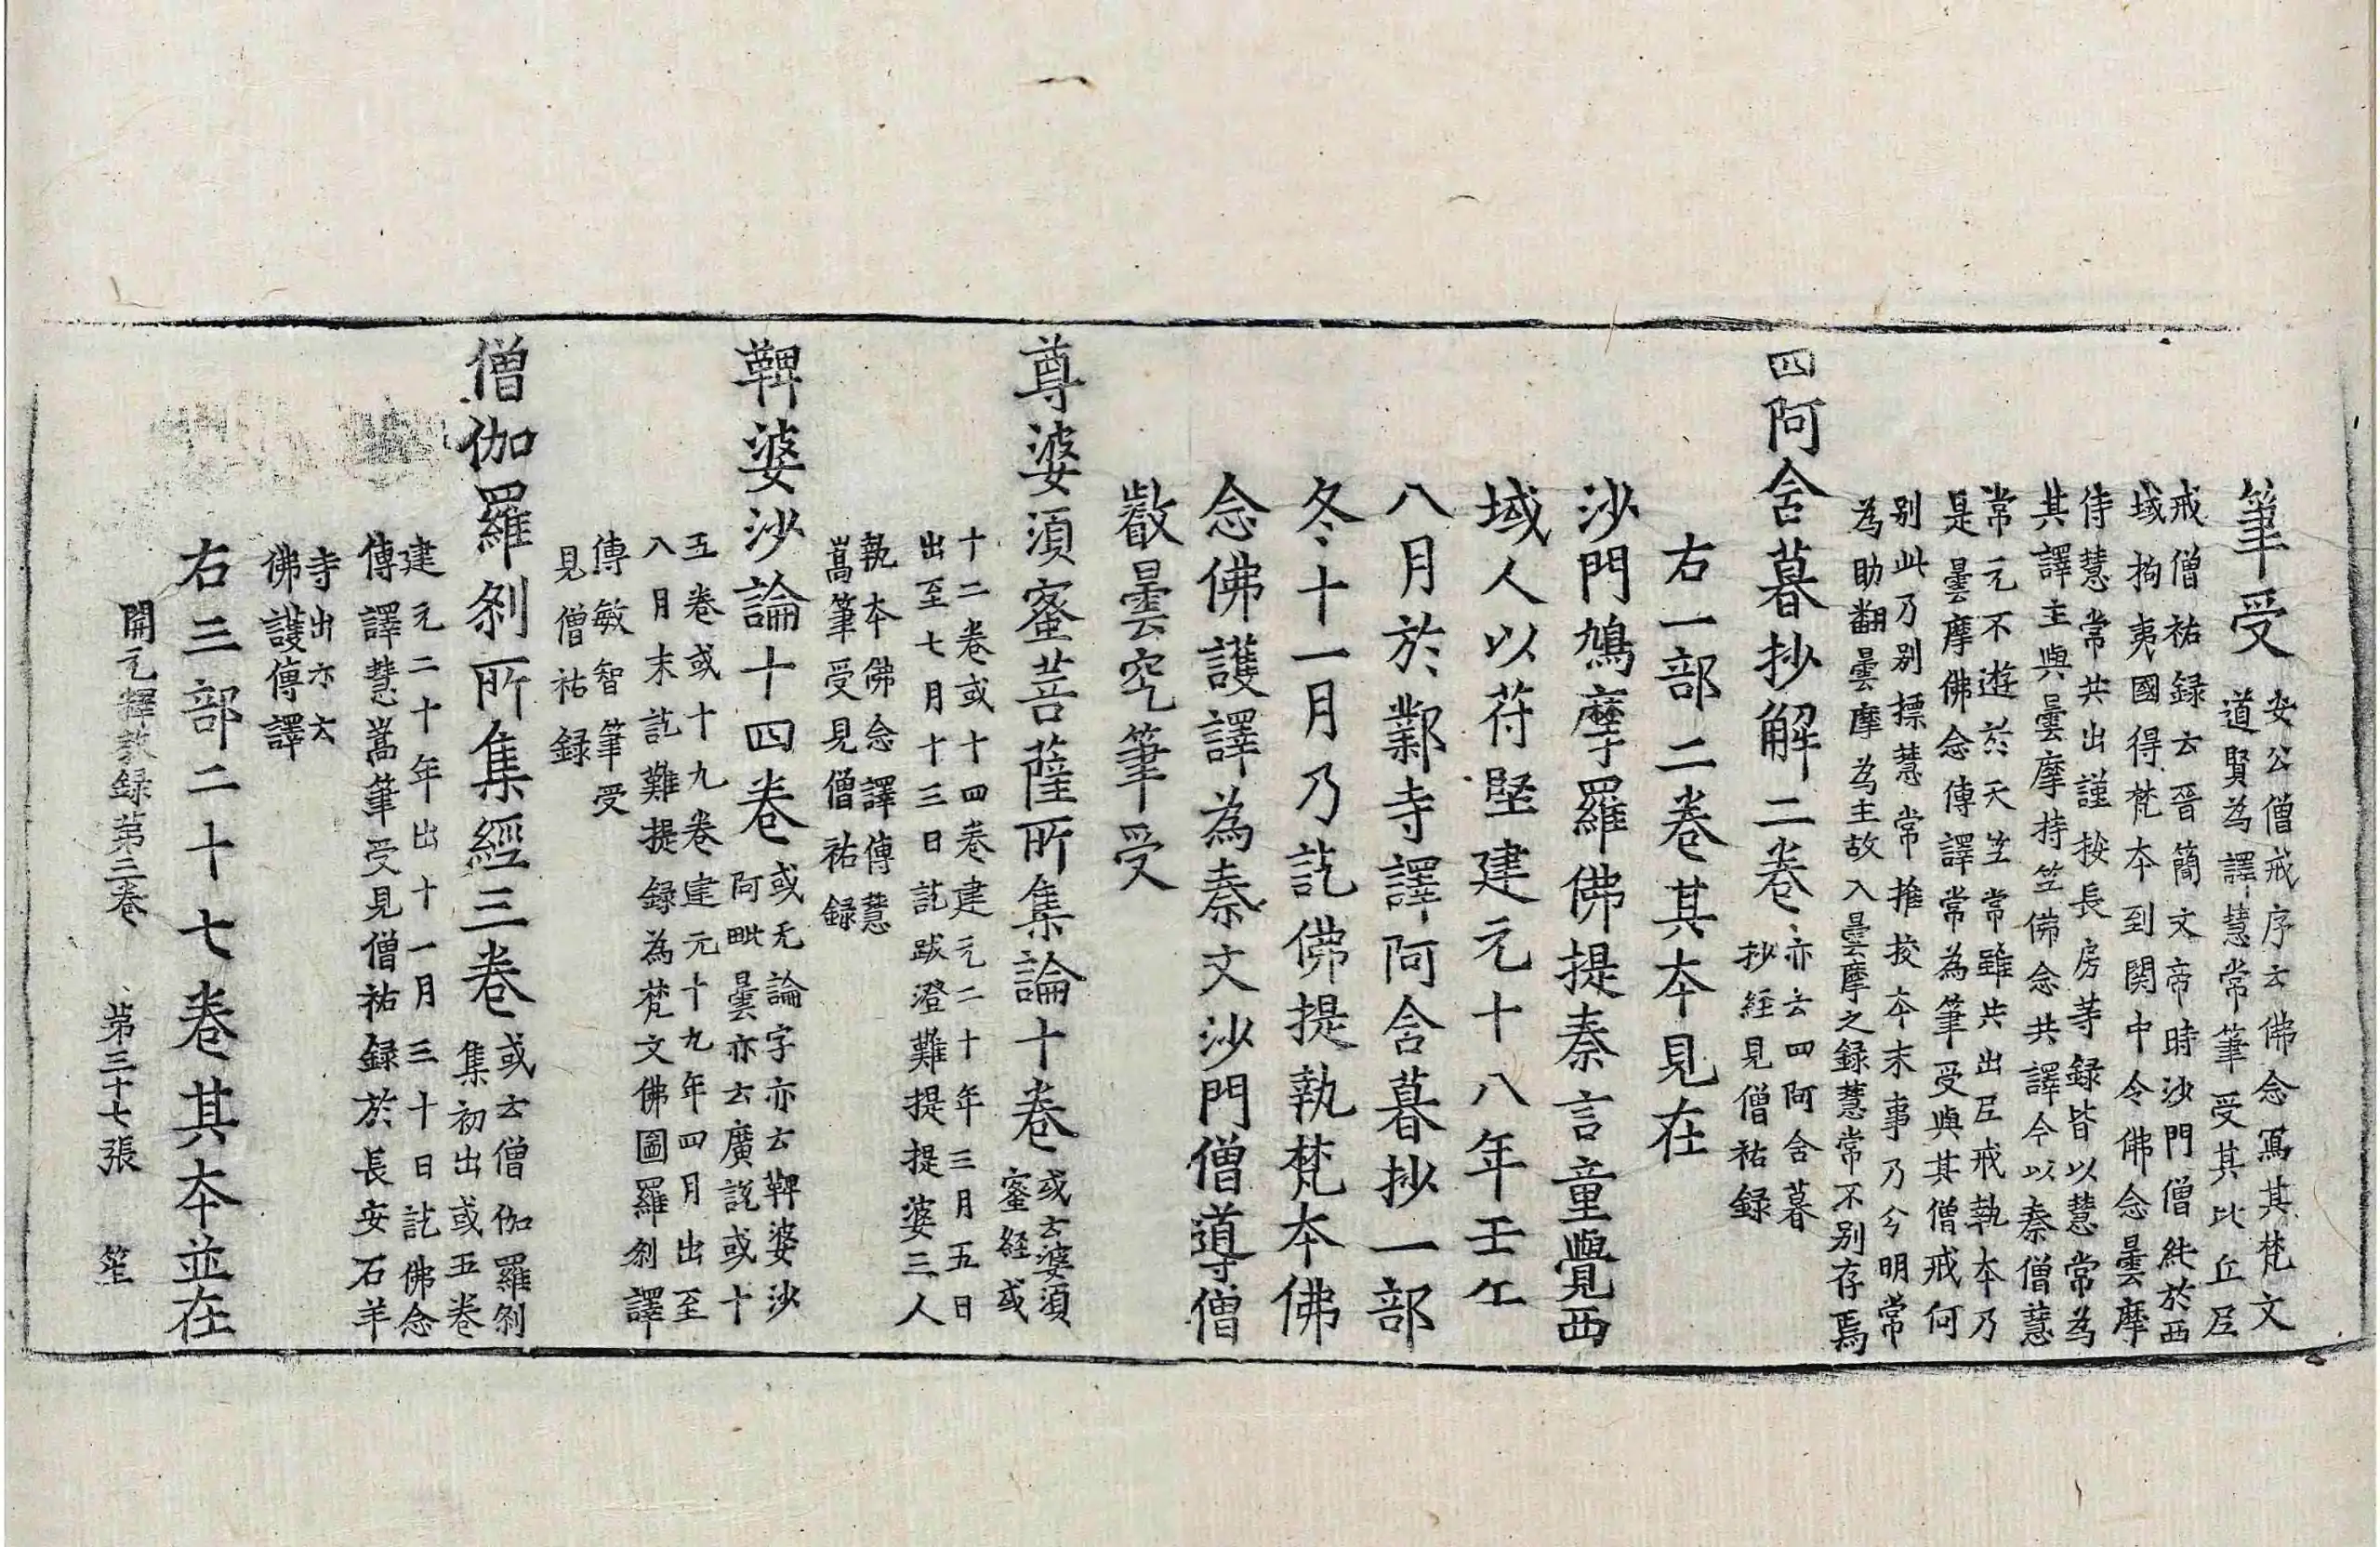 筆受
安公僧戒序云佛念寫其梵文
道賢為譯慧常筆受其比丘尼
戒僧祐録云晉簡文帝時沙門僧純於西
域拘夷國得梵夲到関中令佛念曇摩
侍慧常共出謹按長房䓁録皆以慧常為
其譯主與曇摩持竺佛念共譯今以秦僧慧
常元不遊於天竺常雖共出尼戒執夲乃
是曇摩佛念傳譯常為筆受與其僧戒何
别此乃别摽慧常推挍夲末事乃兮明常
為助翻曇摩為主故入曇摩之録慧常不别存焉
四阿含暮抄解二卷
亦云四阿含暮
抄經見僧祐録
右一部二卷其夲見在
沙門鳩摩羅佛提秦言童覺西
域人以苻堅建元十八年壬午
八月於鄴寺譯阿含暮抄一部
冬十一月乃訖佛提執梵夲佛
念佛護譯為秦文沙門僧導僧
叡曇究筆受
尊婆須蜜菩薩所集論十卷
或云婆須
蜜經或
十二卷或十四卷建元二十年三月五日
出至七月十三日訖跋澄難提提婆三人
執夲佛念譯傳慧
嵩筆受見僧祐録
鞞婆沙論十四卷
或无論字亦云鞞婆沙
阿毗曇亦云廣説或十
五卷或十九卷建元十九年四月出至
八月末訖難提録為梵文佛圖羅剎譯
傳敏智筆受
見僧祐録
僧伽羅剎所集經三卷
或云僧伽羅剎
集初出或五卷
建元二十年出十一月三十日訖佛念
傳譯慧嵩筆受見僧祐録於長安石羊
寺出亦云
佛護傳譯
右三部二十七卷其夲並在
開元釋教録苐三卷　苐三十七張　笙